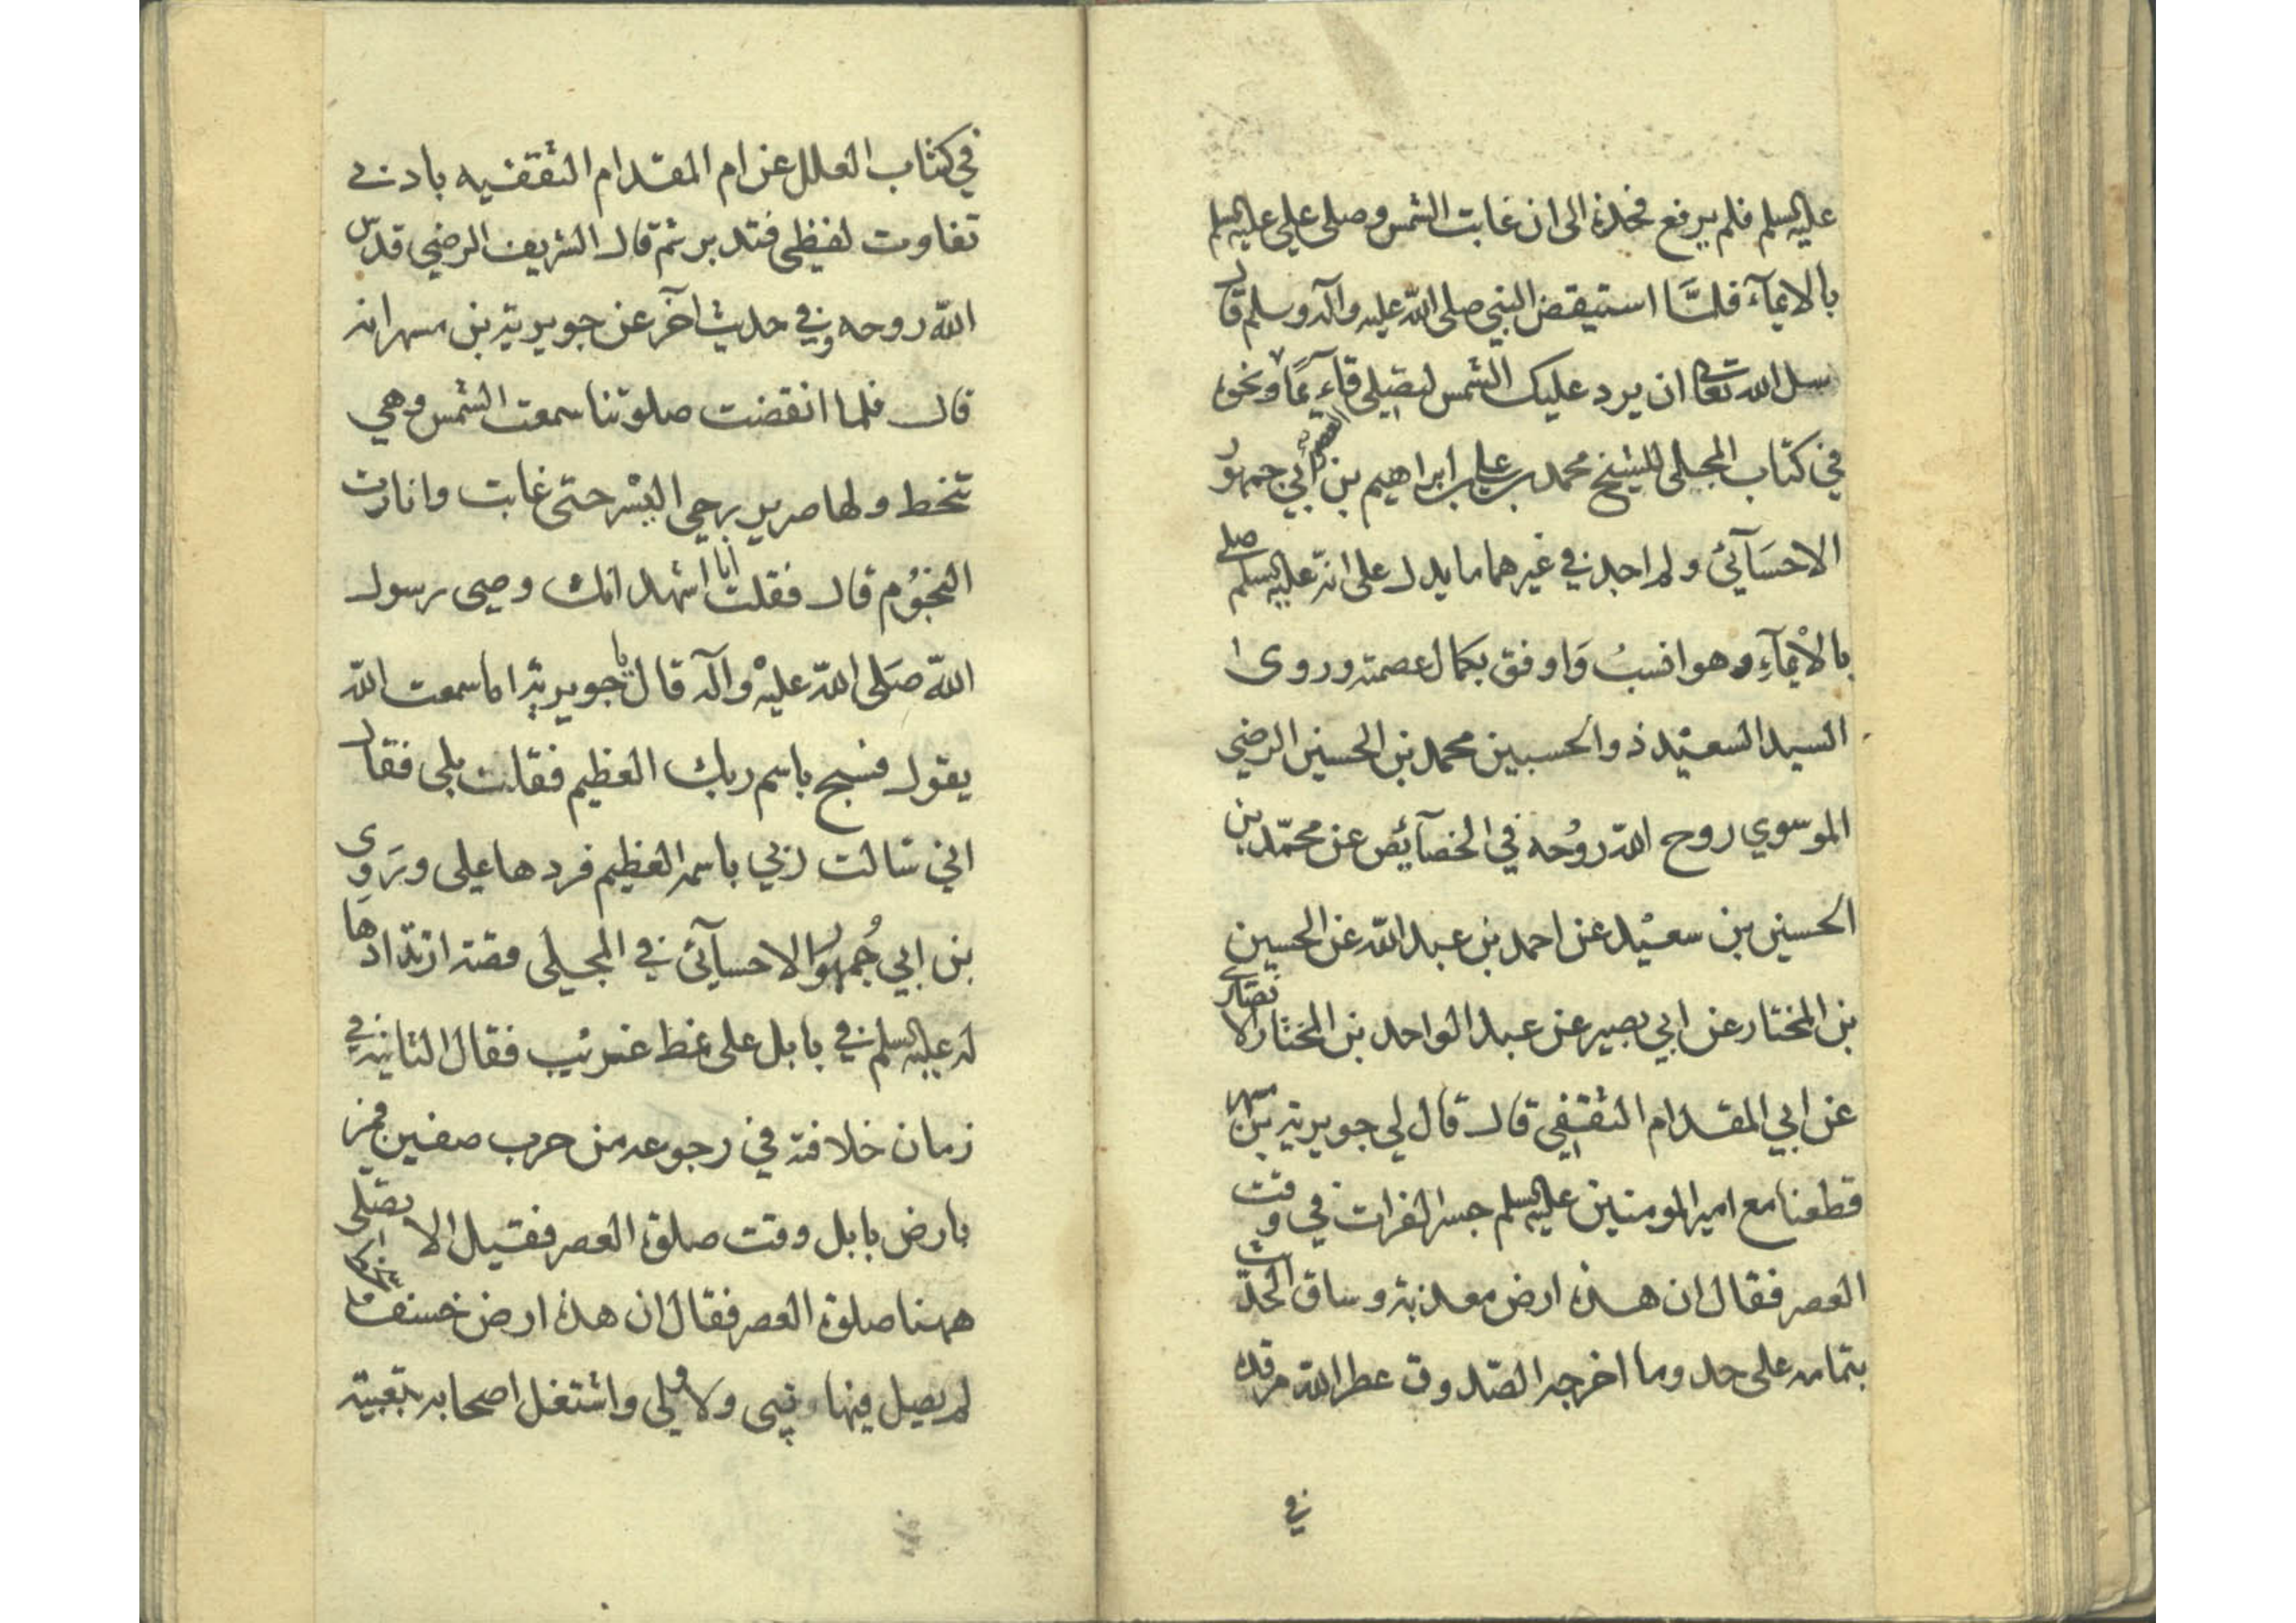 عليه السلم فلم يرفع فخذه الى ان غابت الشمس وصلى علي عليه السلم
بالايمآء فلمَّا استيقض النبي صلى الله عليه وآله وسلم قال
سل الله تعالى ان يرد عليك الشمس لتصلي قآئمًا ونحوه
في كتاب المجلى للشيخ محمد بن علي بن ابراهيم بن ابي جمهور
الاحسَآئي ولم اجد في غيرهما ما يدل على انه عليه السلم صلى
بالْايمآءِ وهو انسبُ وَاوفق بكمال عصمته وروى
السيد السعيد ذو الحسبين محمد بن الحسين الرضي
الموسوي روح الله روُحه في الخصآئص عن محمّد بن
الحسين بن سعيْد عن احمد بن عبد الله عن الحسين
بن المختار عن ابي بصير عن عبد الواحد بن المختار الانصاري
عن ابي المقدام الثقفي قال قال لي جويرية بن مسهر
قطعنا مع امير المومنين عليه السلم جسر الفرات في وقت
العصر فقال ان هذه ارض معذبة وساق الحديث
بتمامه على حد وما اخرجه الصّدوق عطر الله مرقده
في
في كتاب العلل عن ام المقدام الثقفيه بادنى
تفاوت لفظي فتدبر ثم قال الشريف الرضي قدس
الله روحه وفي حديث آخر عن جويرية بن مسهر انه
قال فلما انقضت صلوتنا سمعت الشمس وهي
تنخط ولها صرير رحي البئر حتى غابت وانارت
النجوُم قال فقلت انا اشهد انك وصي رسول
الله صَلى الله عليْه وآله قال يا جويرية اما سمعت الله
يقول فسبح باسم ربك العظيم فقلت بلى فقال
اني سالت ربي باسمه العظيم فردها علي ورَوى
بن ابي جُمهوُر الاحسآئي في المجلى قصة ارتدادها
له عليه السلم في بابل على نمط غريب فقال الثانية في
زمان خلافته في رجوعه من حرب صفين فمر
بارض بابل وقت صلوة العصر فقيل الا نصلي
ههنا صلوة العصر فقال ان هذه ارض خسف
لم يصل فيها نبي ولا ولي واشتغل اصحابه بتعبية